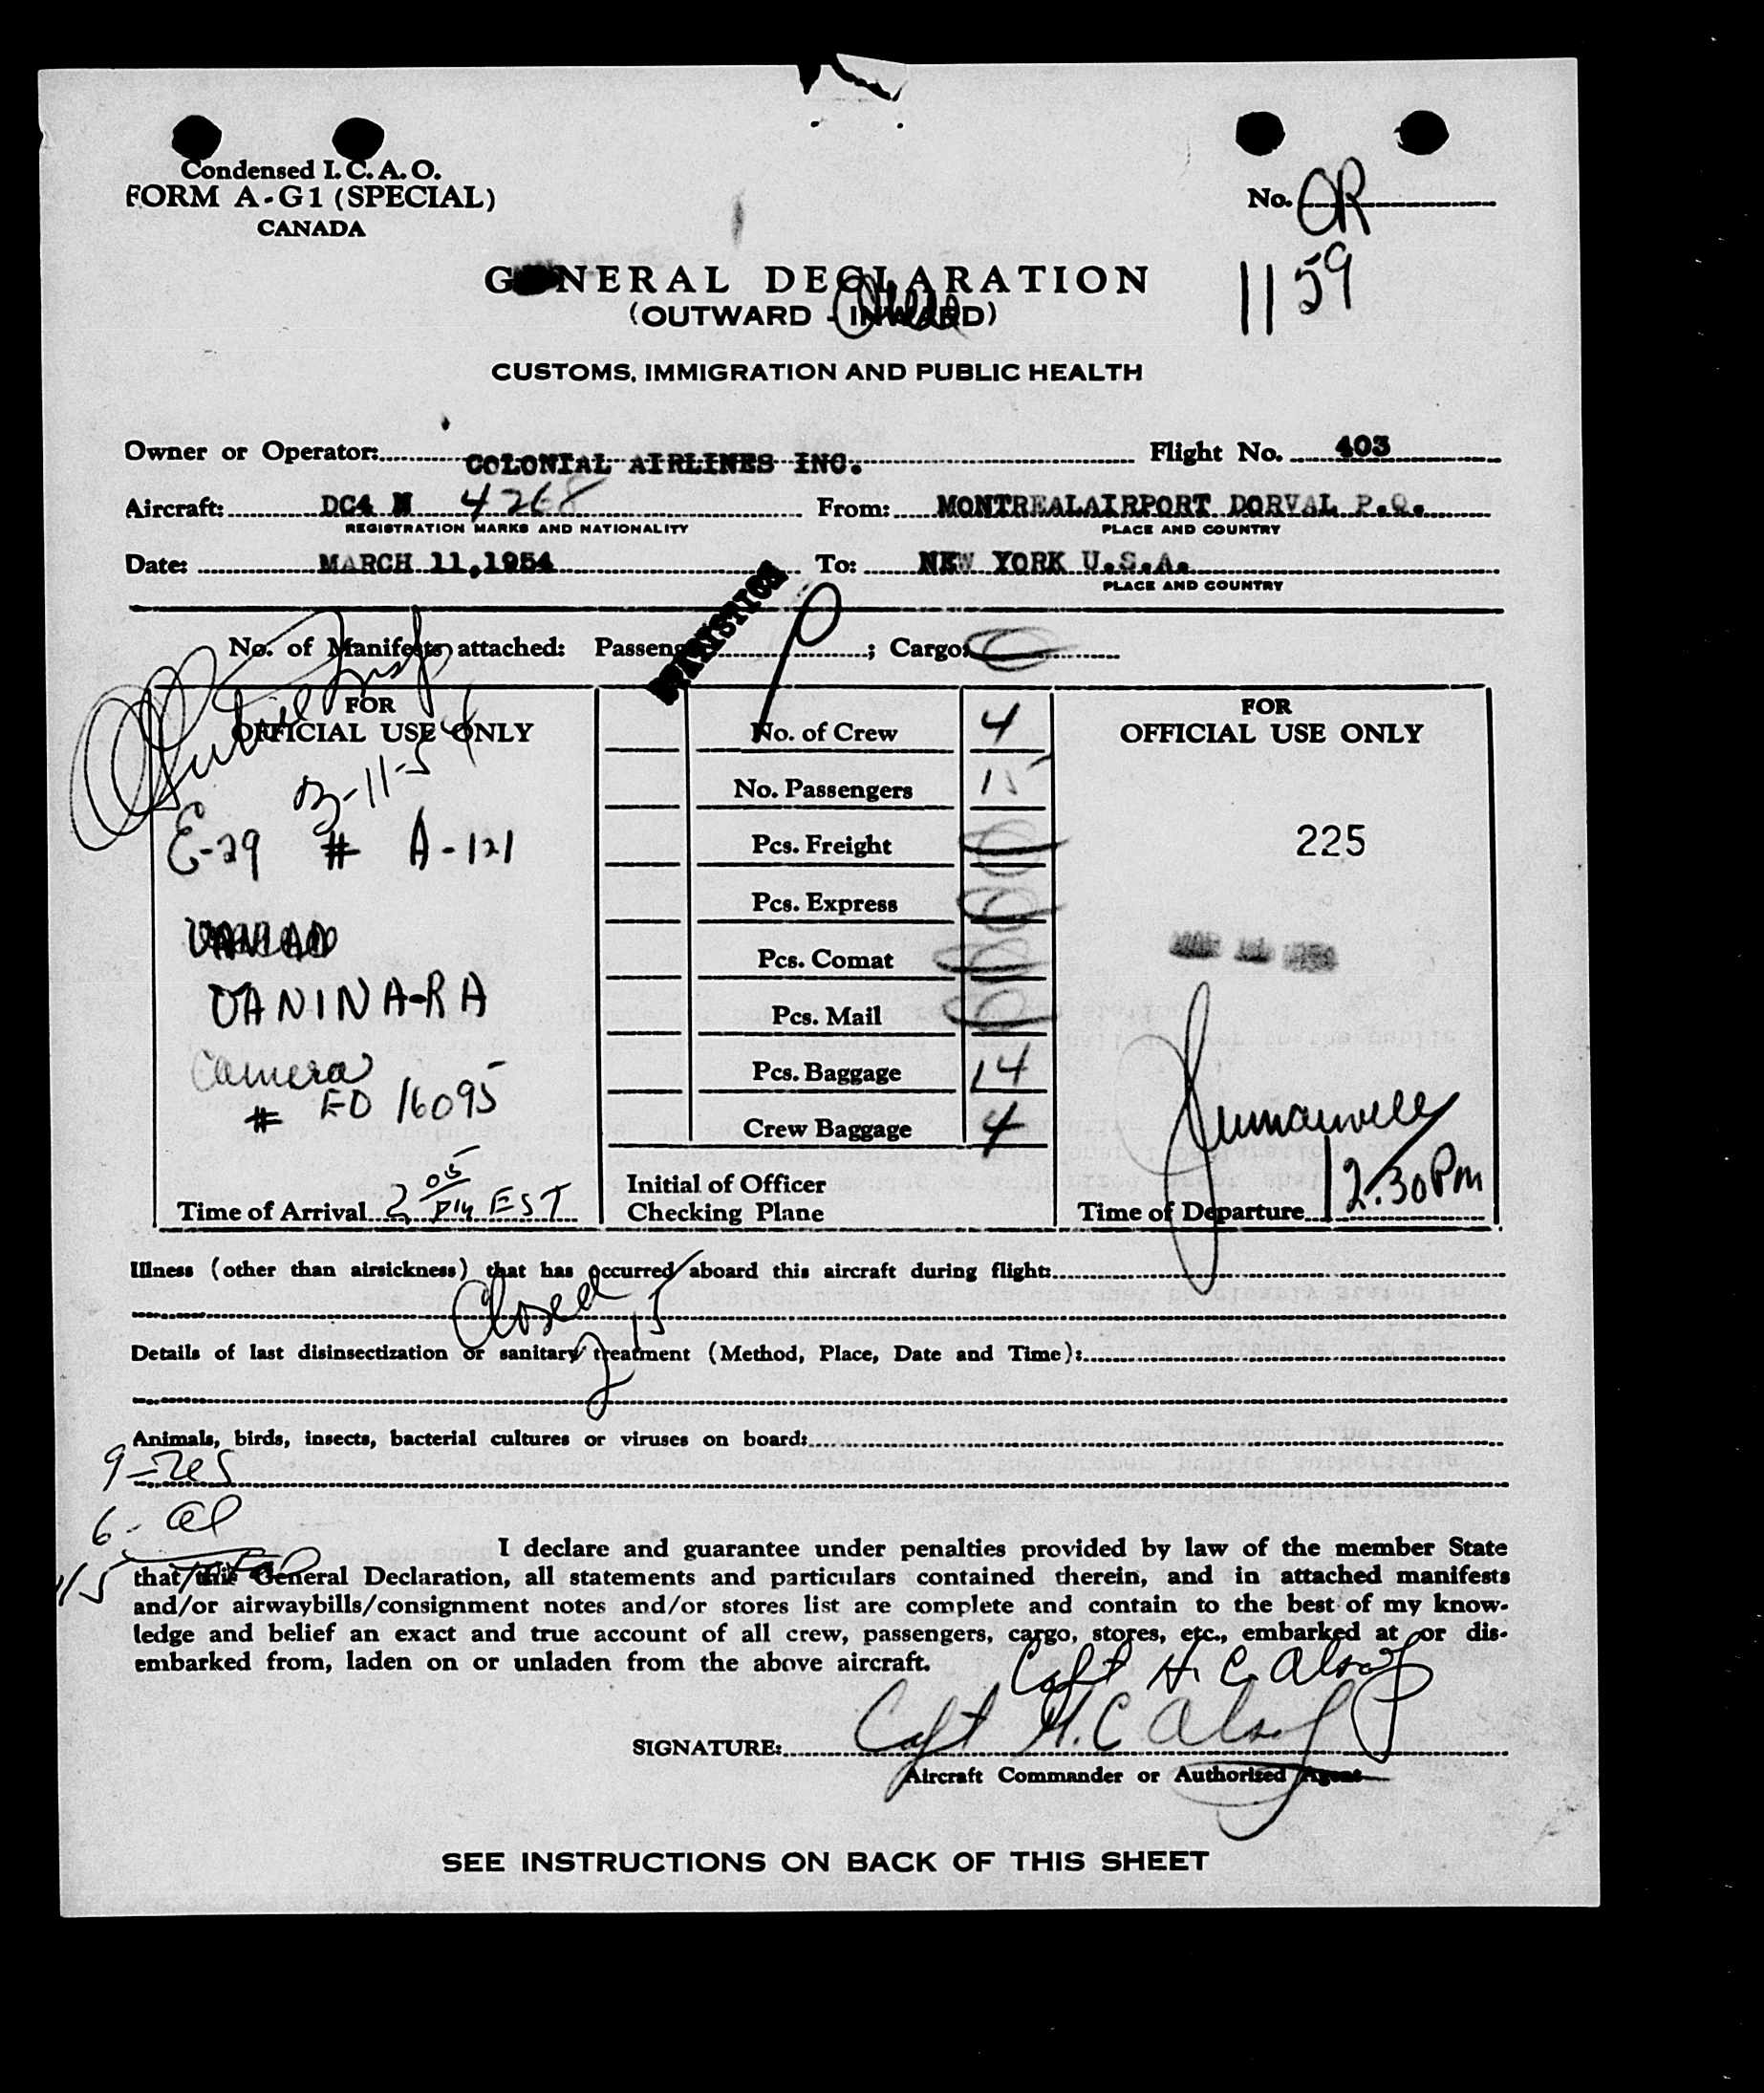 Condensed I. C. A. O.
FORM A-G1 (SPECIAL)
CANADA
No. OR
1159
GENERAL DECLARATION
(OUTWARD - INWARD)
CUSTOMS, IMMIGRATION AND PUBLIC HEALTH
Owner or Operator: COLONIAL AIRLINES INC. Flight No. 403
Aircraft: DC4 N 4268 From: MONTREALAIRPORT DORVAL P.Q.
REGISTRATION MARKS AND NATIONALITY PLACE AND COUNTRY
Date: MARCH 11,1954 To: NEW YORK U.S.A.
PLACE AND COUNTRY
No. of Manifests attached: Passenger ; Cargo: 0
FOR
OFFICIAL USE ONLY
E-29 # A-121
VANINA-RA
Camera
# ED 16095
Time of Arrival 2 05 PM EST
No. of Crew 4
No. Passengers 15
Pcs. Freight 0
Pcs. Express 0
Pcs. Comat 0
Pcs. Mail 0
Pcs. Baggage 14
Crew Baggage 4
Initial of Officer
Checking Plane
FOR
OFFICIAL USE ONLY
225
Time of Departure 12.30 PM
Illness (other than airsickness) that has occurred aboard this aircraft during flight:
Closed
215
Details of last disinsectization or sanitary treatment (Method, Place, Date and Time):
Animals, birds, insects, bacterial cultures or viruses on board:
9-res
6- al
15 Total
I declare and guarantee under penalties provided by law of the member State
that this General Declaration, all statements and particulars contained therein, and in attached manifests
and/or airwaybills/consignment notes and/or stores list are complete and contain to the best of my know-
ledge and belief an exact and true account of all crew, passengers, cargo, stores, etc., embarked at or dis-
embarked from, laden on or unladen from the above aircraft.
Capt H. C. Alsop
SIGNATURE: Capt H. C Alsop
Aircraft Commander or Authorized Agent
SEE INSTRUCTIONS ON BACK OF THIS SHEET